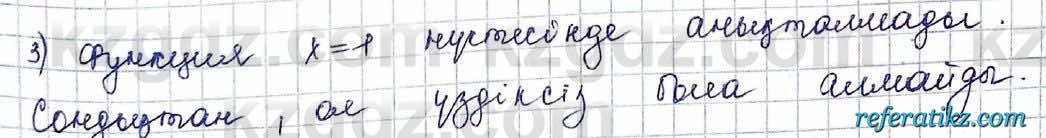 3) Функция x=1 нүктесінде анықталмады.
Сондықтан, ол үздіксіз бола алмайды.
referatikz.com